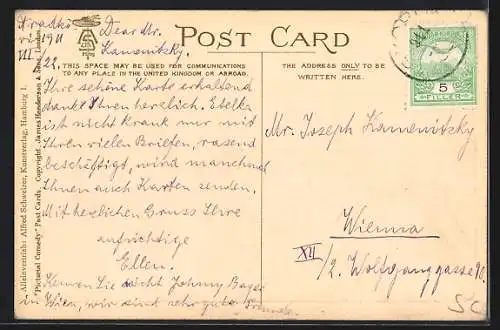 1911
VII/22.
Dear Mr.
Kamenitzky.
POST CARD
THIS SPACE MAY BE USED FOR COMMUNICATIONS
TO ANY PLACE IN THE UNITED KINGDOM OR ABROAD.
THE ADDRESS ONLY TO BE
WRITTEN HERE.
Ihre schöne Karte erhaltend
dankt Ihnen herzlich. Stella
ist nicht krank nur mit
Ihren vielen Briefen, rasend
beschäftigt, wird manchmal
Ihnen auch Karten senden.
Mit herzlichen Gruss Ihre
aufrichtige
Ellen.
Kennen Sie nicht Johny
in Wien, wir sind sehr gute Freunde.
5
FILLÉR
Mr. Joseph Kamenitzky
Wienna
XII
1/2. Wolfganggasse
Alleinvertrieb: Alfred Schweizer, Kunstverlag, Hamburg 1.
"Pictorial Comedy" Post Cards. Copyright. James Henderson & Sons, London.